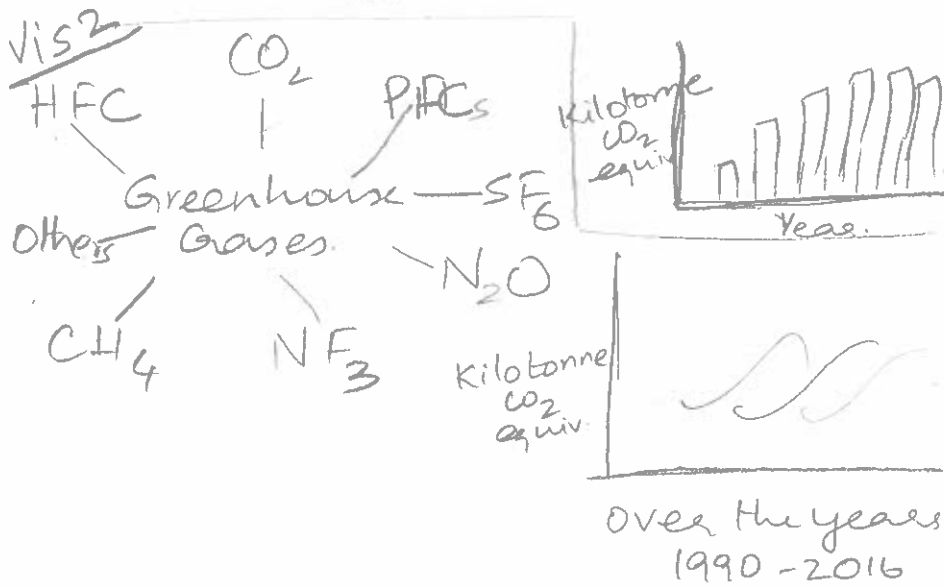 Vis2
HFC
CO2
PHFCs
Greenhouse
Gases.
SF6
Others
N2O
CH4
NF3
Kilotonne
CO2
equiv.
Year.
Kilotonne
CO2
equiv.
Over the years
1990-2016